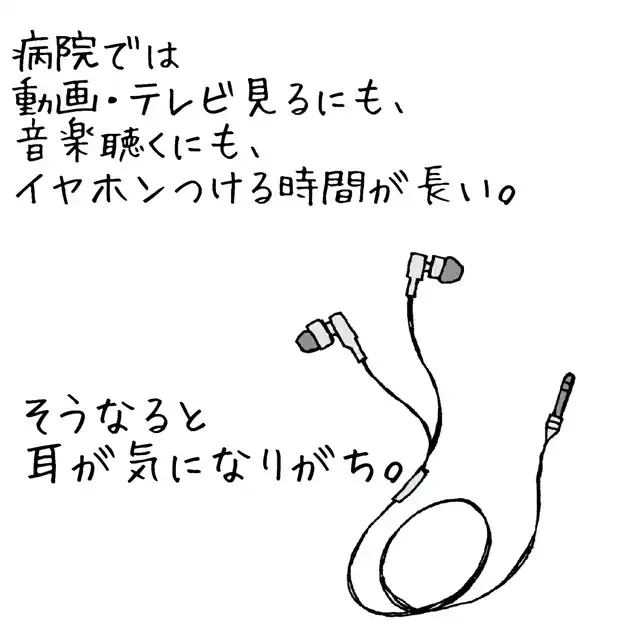 病院では
動画・テレビ見るにも、
音楽聴くにも、
イヤホンつける時間が長い。
そうなると
耳が気になりがち。